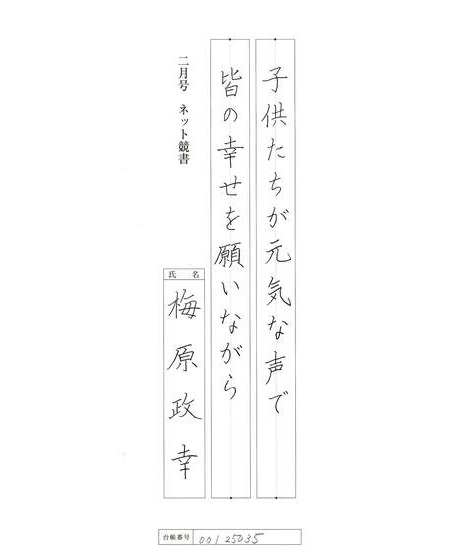 子供たちが元気な声で
皆の幸せを願いながら
二月号 ネット競書
氏 名
梅原政幸
台帳番号 00125035